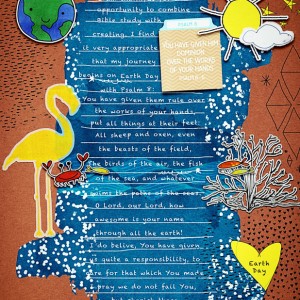 opportunity to combine
Bible study with
creating. I find
it very appropriate
that my journey
begins on Earth Day
with Psalm 8:
You have given them rule over
the works of your hands,
put all things at their feet:
All sheep and oxen, even
the beasts of the field,
The birds of the air, the fish
of the sea, and whatever
swims the paths of the seas.
O Lord, our Lord, how
awesome is your name
through all the earth!
I do belive, You have given
us quite a responsibility, to
care for that which You made
pray we do not fail You,
YOU HAVE GIVEN HIM
DOMINION
OVER THE WORKS
OF YOUR HANDS
PSALM 8
Earth
Day